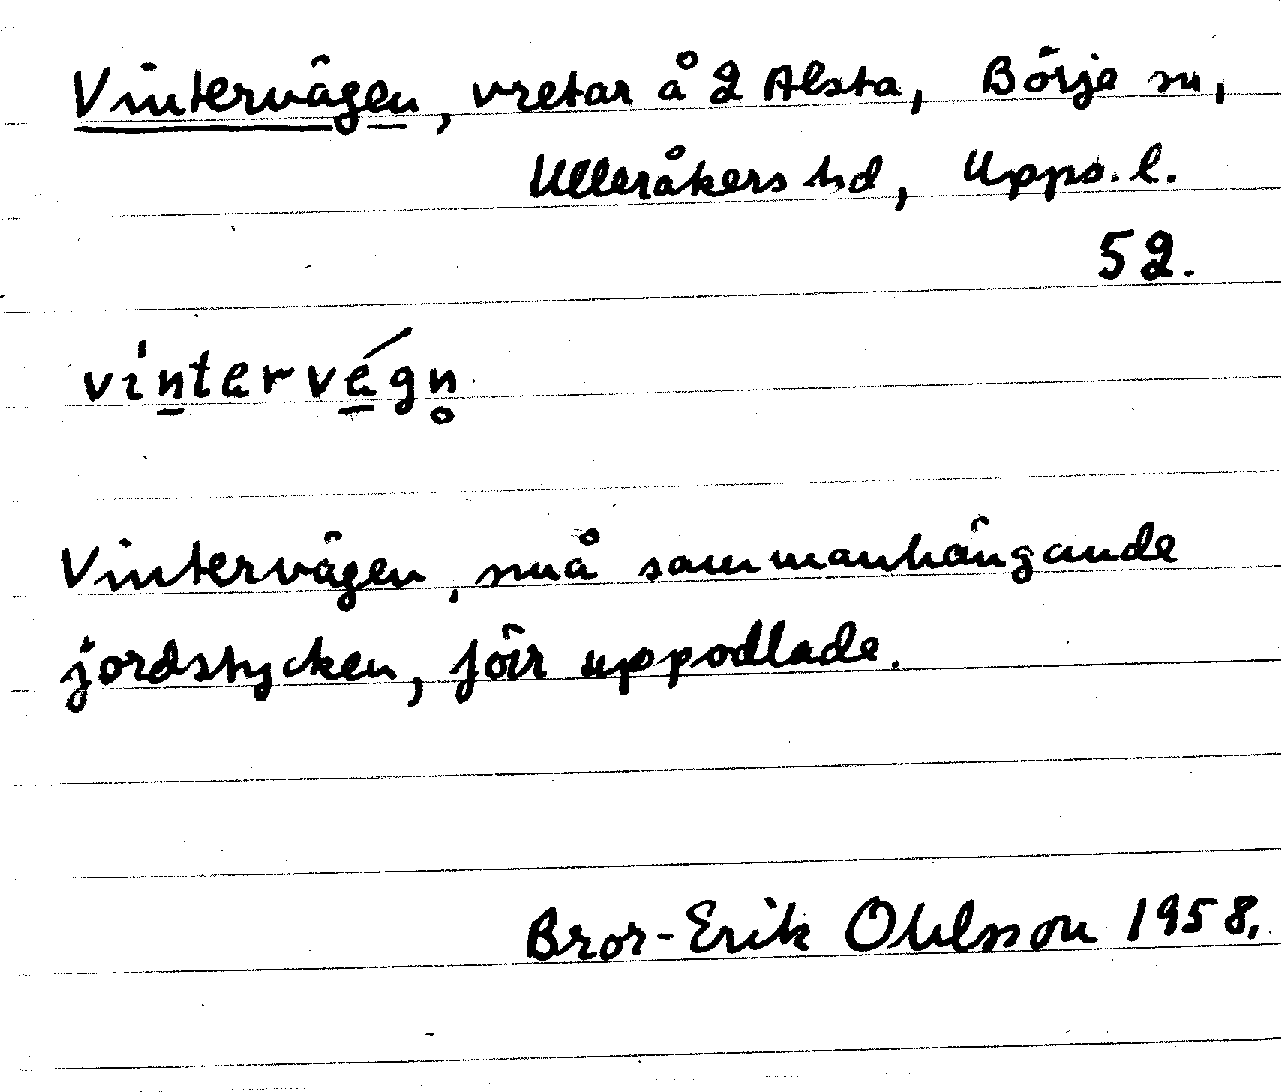 Vintervägen, vretar å 2 Alsta, Börje sn,
Ulleråkers hd, Upps. l.
52.
vi̍nt̠ervé̠gn̥
Vintervägen, små sammanhängande
jordstycken, förr uppodlade.
Bror-Erik Ohlsson 1958.